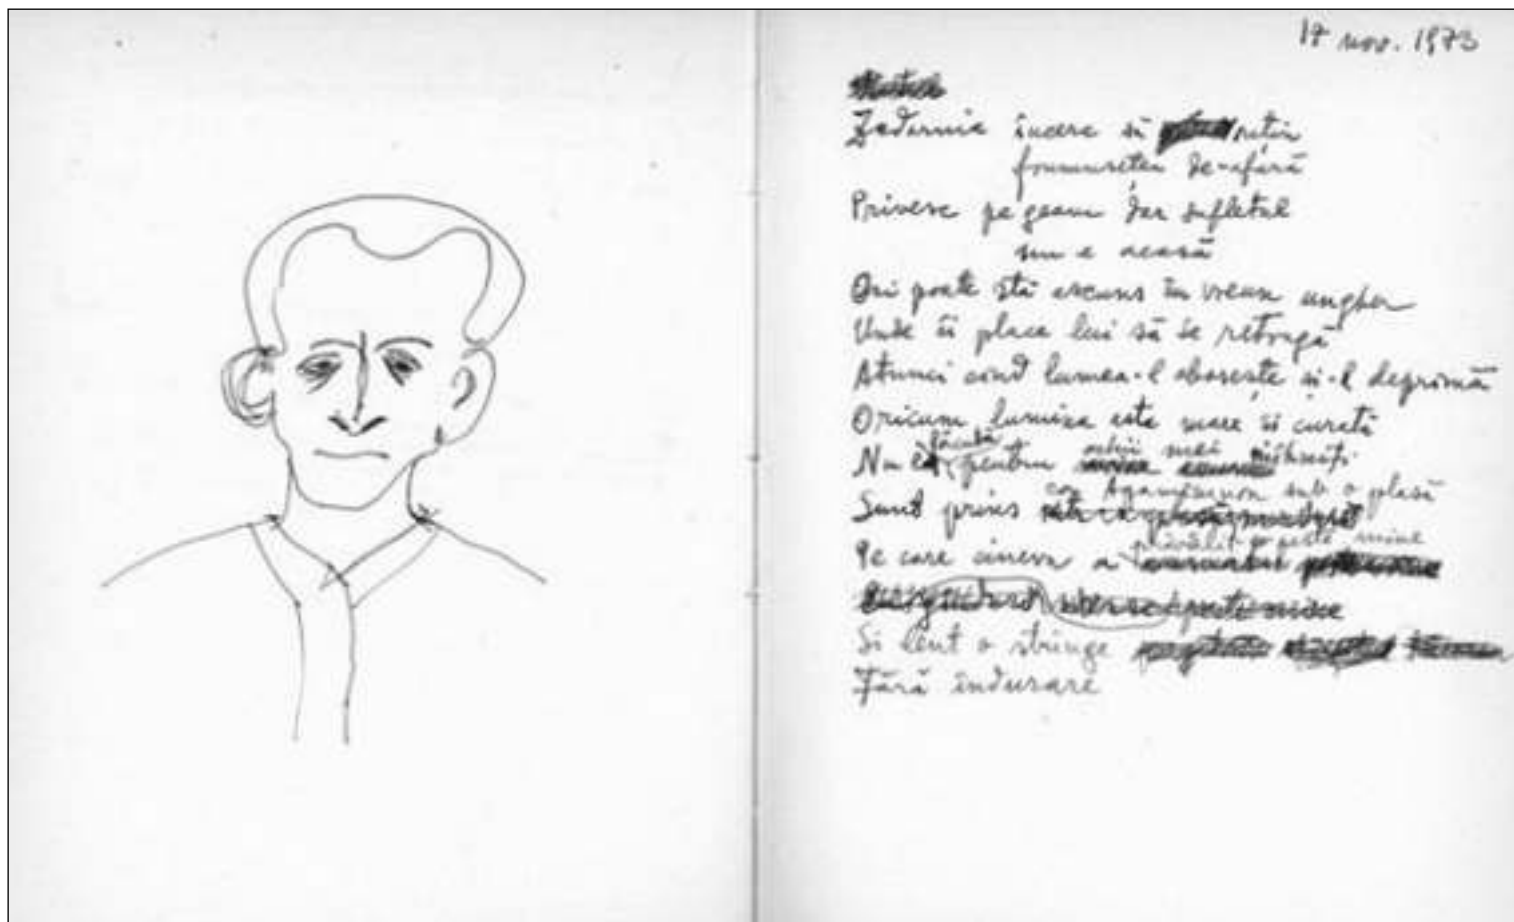 17 nov. 1973
Zadarnic încerc să rețin
frumusețea de-afară
Privesc pe geam dar sufletul
nu-e acasă
Ori poate stă ascuns în vreun ungher
Unde îi place lui să se retragă
Atunci când lumea-l obosește și-l deprimă
Oricum lumina este mare și curată
Nu e făcută pentru ochii mei
Sunt prins ca Agamemnon sub o plasă
Pe care cineva a prăvălit-o peste mine
Și lent o strînge
Fără îndurare